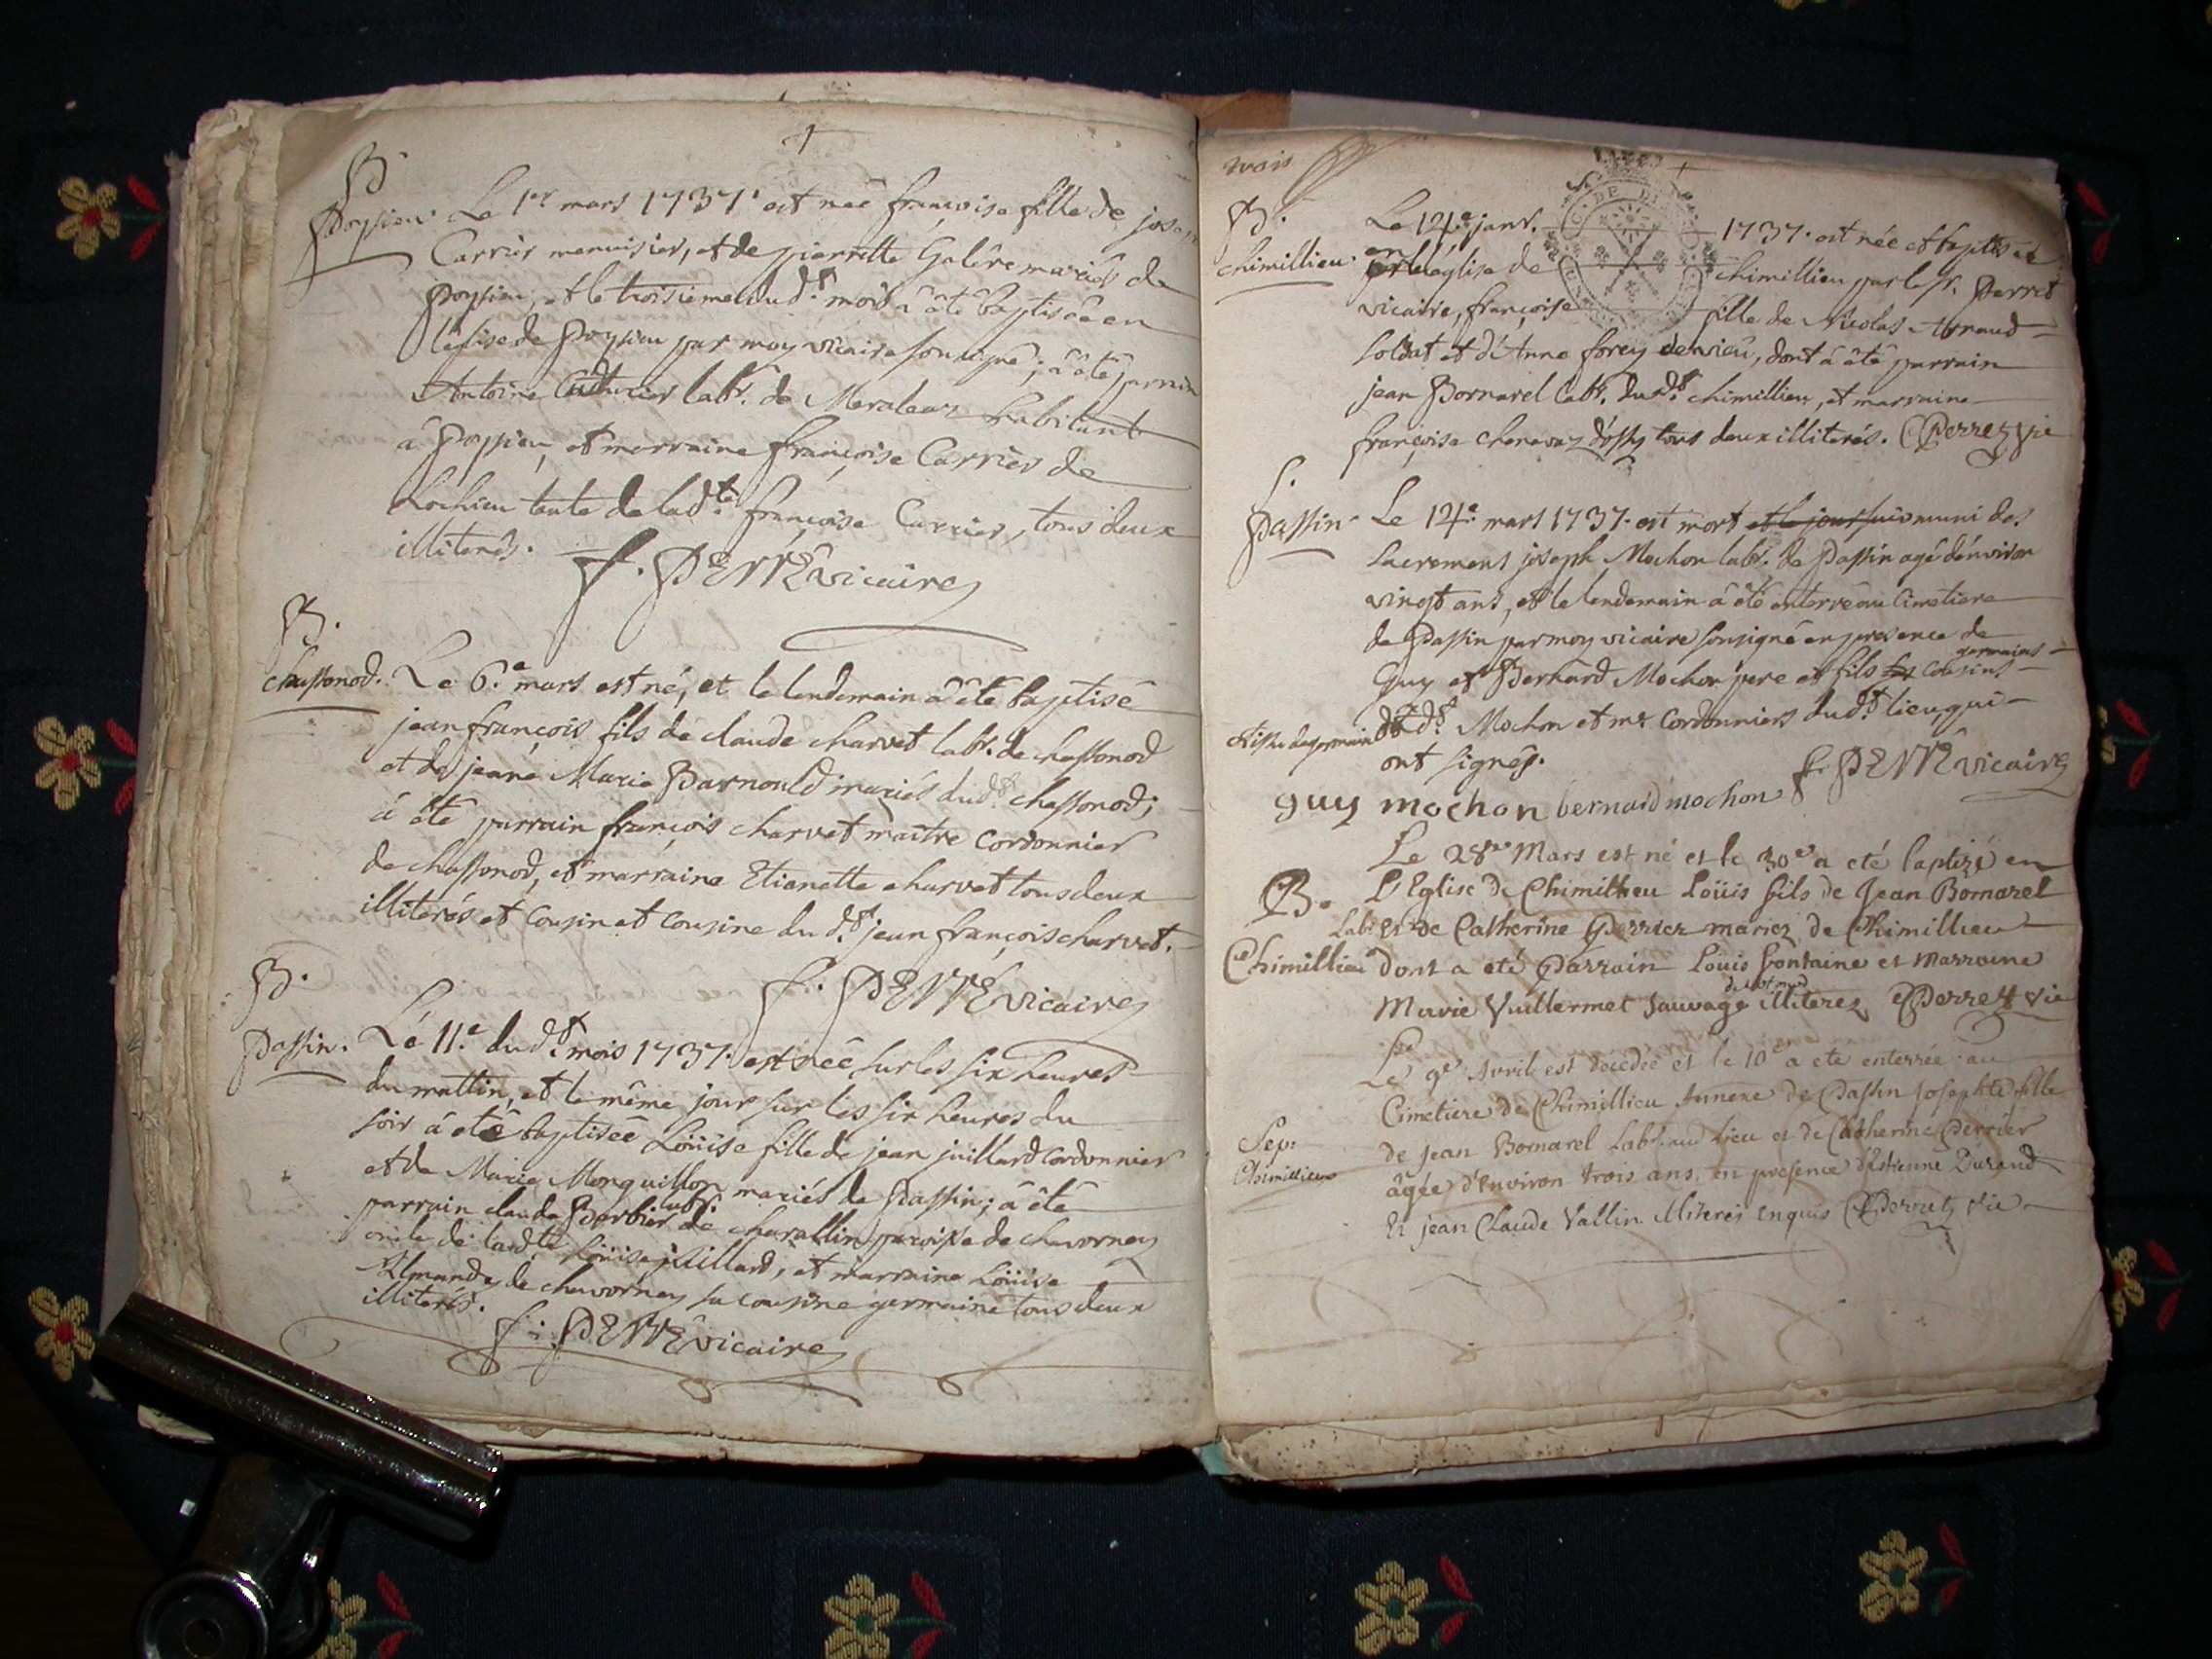 B
Poysieu. Le 1er mars 1737. est née françoise fille de josep
Carrier menuisier, et de pierrette Galère mariés de
poysieu, et le troisieme du dt. mois â êté baptisée en
l'église de poysieu par moy vicaire sousigné; â êté parrain
Antoine labr. de habitant
â Poysieu, et marraine françoise Carrier de
Lochieu tante de ladte. françoise Carrier, tous deux
illiterés.
f. PERRÉ vicaire
B.
chassonod. Le 6.e mars est né, et le lendemain â êté baptisé
jean françois fils de claude charvet labr. de chassonod
et de jeane Marie Parnould mariés du dt. chassonod;
â êté parrain françois charvet maître Cordonnier
de chassonod, et marraine Etienette charvet tous deux
illiterés et Cousin et Cousine du dt. jean françois charvet.
f. PERRÉ vicaire
B.
Passin. Le 11.e du dt. mois 1737. est née sur les six heures
du mattin, et le même jour sur les six heures du
soir â etê baptisée Loüise fille de jean juillard Cordonnier
et de Marie Monguillon mariés de Passin; â êté
parrain claude Barbier labr. de charallin paroisse de chavornay
oncle de ladte. Loüise juillard, et marraine Loüise
de chavornay sa cousine germaine tous deux
illiterés.
f. PERRÉ vicaire
mars
B.
Le 14.e janv. 1737. est née et baptisée
chimillieu. en l'église de chimillieu par le sr. Perret
vicaire, françoise fille de Nicolas Arnaud
soldat et d'Anne forey de vieu, dont â êté parrain
jean Bornarel labr. du dt. chimillieu, et marraine
françoise chenavaz tous deux illiterés. Perret vic
S.
Passin. Le 14.e mars 1737. est mort et le jour suiv muni des
sacrements joseph Mochon labr. de Passin agé d'environ
vingt ans, et le lendemain â êté enterré au Cimetiere
de Passin par moy vicaire sousigné en presence de
Guy et Bernard Mochon pere et fils Cousins germains
du dt. Mochon et mes Cordonniers du dt. lieu, qui
ont signés.
guy mochon bernard mochon f. PERRÉ vicaire
Le 28me Mars est né et le 30e a eté baptizé en
B. L'Eglise de Chimillieu Loüis fils de Jean Bornarel
Labr. et de Catherine Perrier mariez de Chimillieu
Chimillieu dont a eté Parrain Loüis fontaine et Marraine
Marie Vuillermet Sauvage illiterez Perret vic
Le 9e Avril est décedée et le 10e a eté enterrée au
Cimetiere de Chimillieu Annexe de Passin Josephte fille
Sep: de Jean Bornarel Labr. aud lieu et de Catherine Perrier
Chimillieu âgée d'environ trois ans, en presence d'Estienne Durand
Et jean Claude Vallin illiterés enquis Perret vic